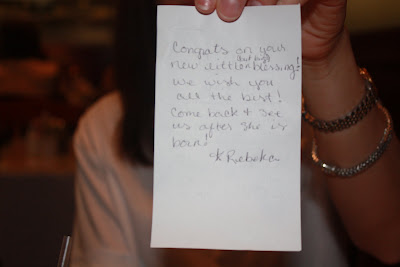 Congrats on your
but big
new little blessing!
we wish you
all the best!
Come back & see
us after she is
born!
Rebeka